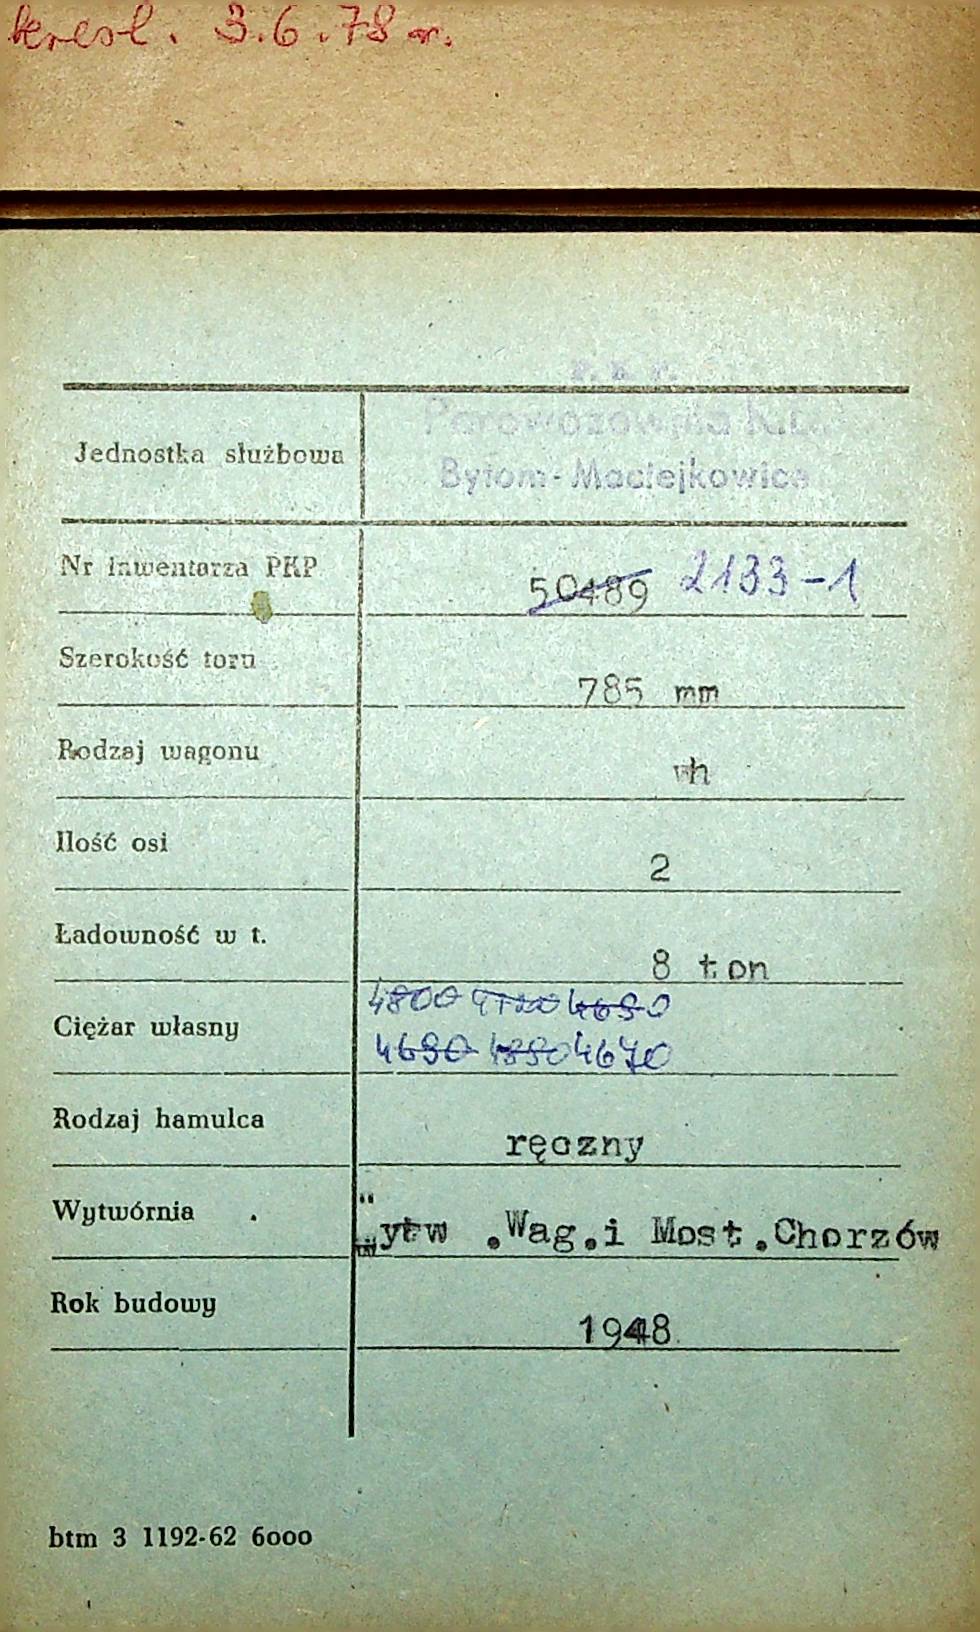 kresl. 3.6.78 r.
P. K. P.
Parowozownia
Bytom-Maciejkowice
Jednostka służbowa
Nr inwentarza PKP 50489 2133-1
Szerokość toru 785 mm
Rodzaj wagonu wh
Ilość osi 2
Ładowność w t. 8 ton
4800 4720 4690
Ciężar własny
4690 4890 4670
Rodzaj hamulca ręczny
Wytwórnia Wytw .Wag.i Most.Chorzów
Rok budowy 1948
btm 3 1192-62 6000